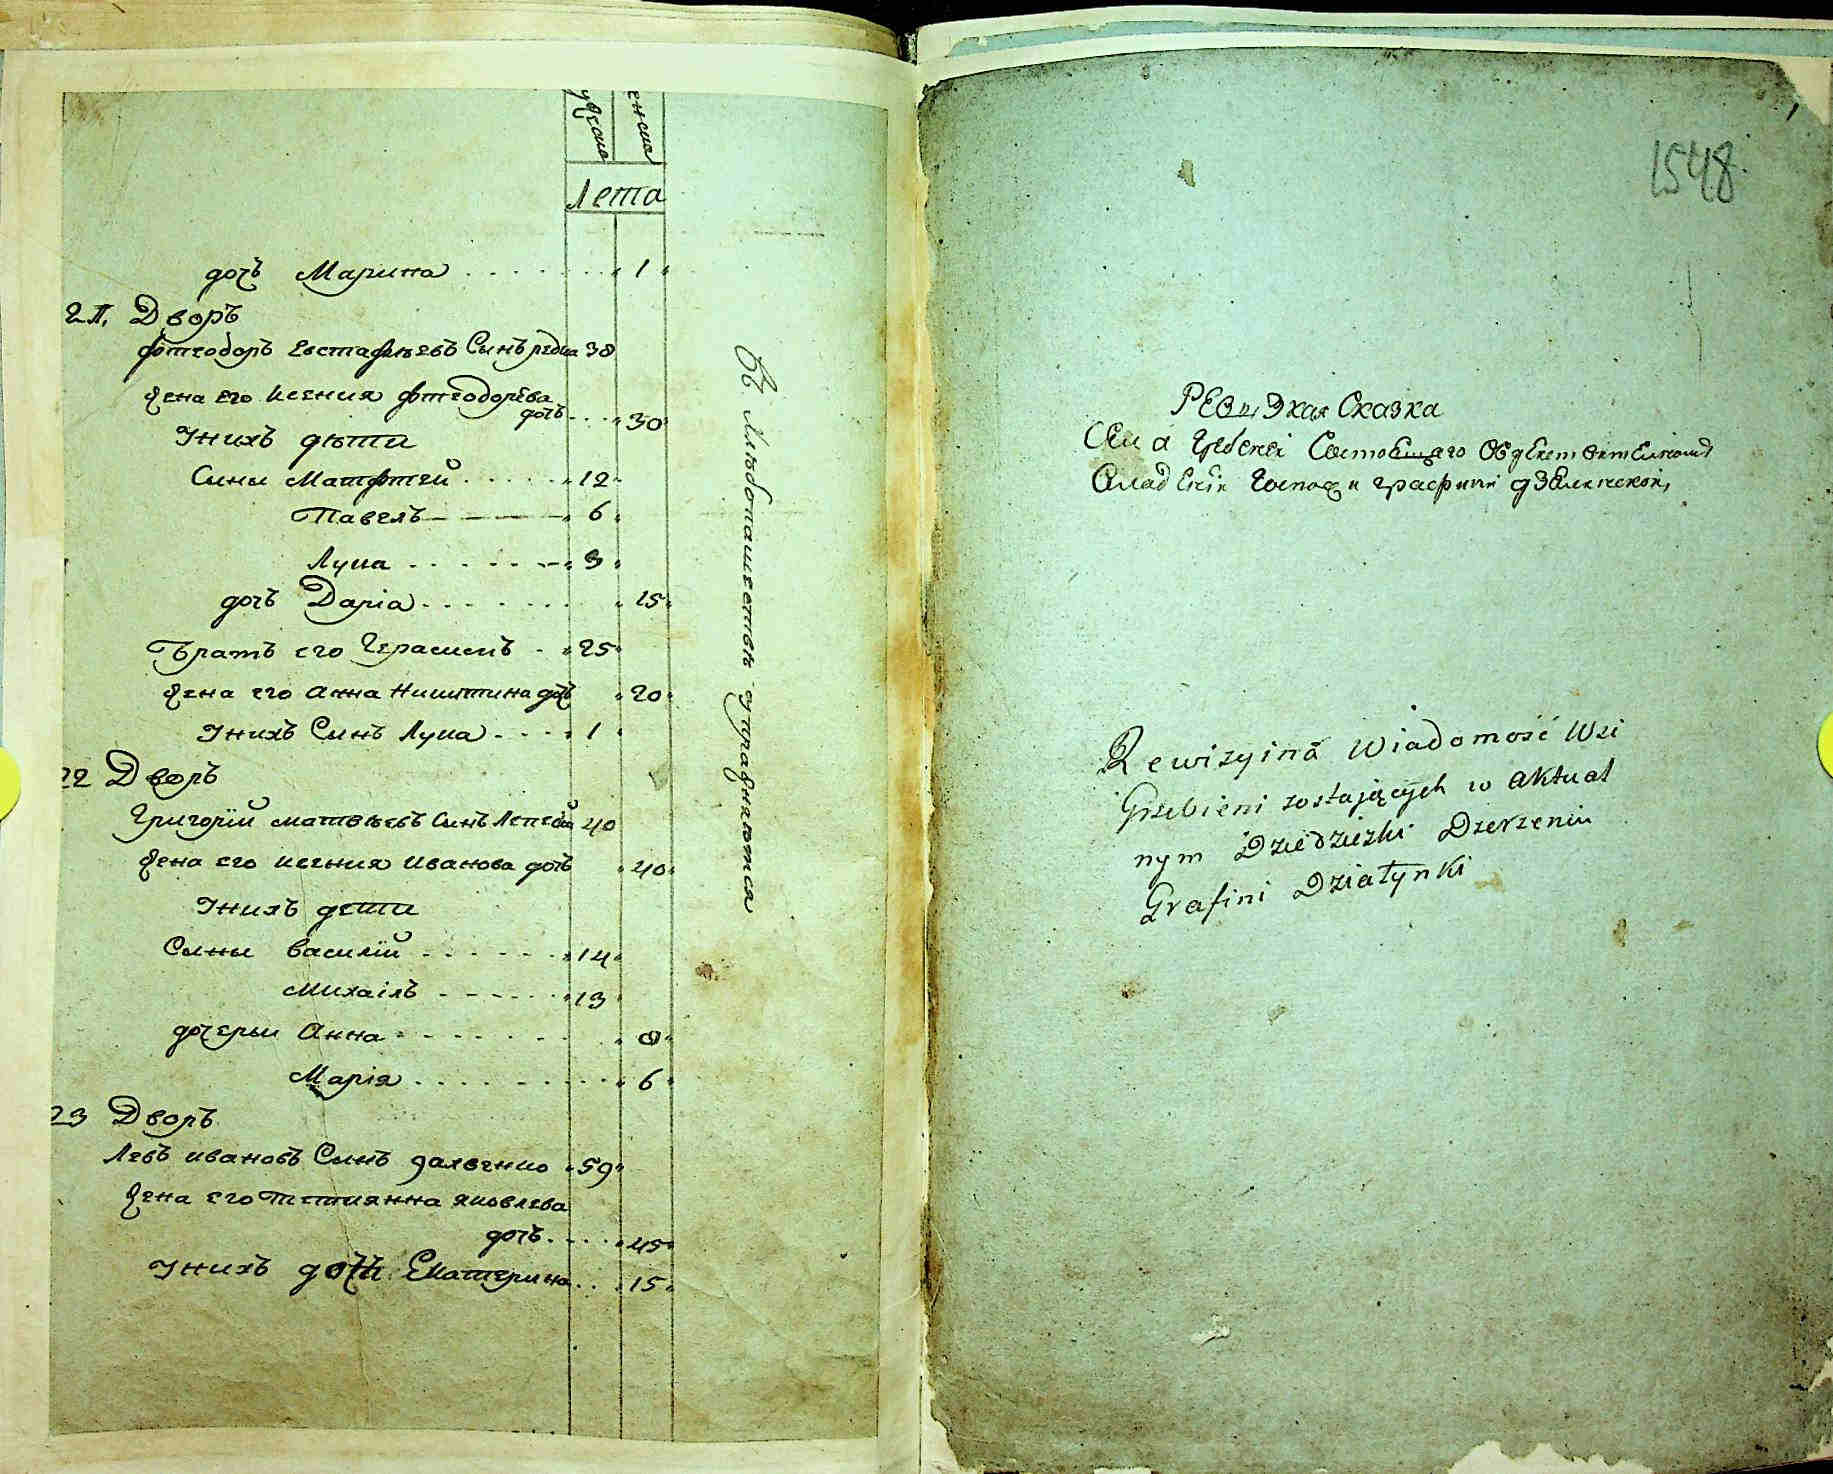 мужеска женска
Лета
дочъ Марина 1
21. Дворъ
Фтеодоръ Евстафьевъ Сынъ 38
жена его Ксения Фтеодорева
дочъ 30
У нихъ дѣти
Сыны Матфтей 12
Павелъ 6
Лука 3
дочъ Дарiа 15
Братъ его Герасимъ 25
жена его Анна Никитина дочъ 20
У нихъ Сынъ Лука 1
22 Дворъ
Григорїй матвѣевъ Сынъ 40
жена его ксения Иванова дочъ 40
У нихъ дети
Сыны василїй 14
Михаiлъ 13
дочеры Анна 8
Марiя 6
23 Дворъ
Левъ ивановъ Сынъ 59
жена его Тетианна яковлева
дочъ 45
У нихъ дочъ Екатерина 15
Въ хлѣбопашествѣ упражняются
1
1548
Сказка
Села Гребенi
Госпожи графини
Rewizyina Wiadomość Wsi
Grzebieni zostających w aktual
nym Dziedziczki Dzerzeniu
Grafini Działynki